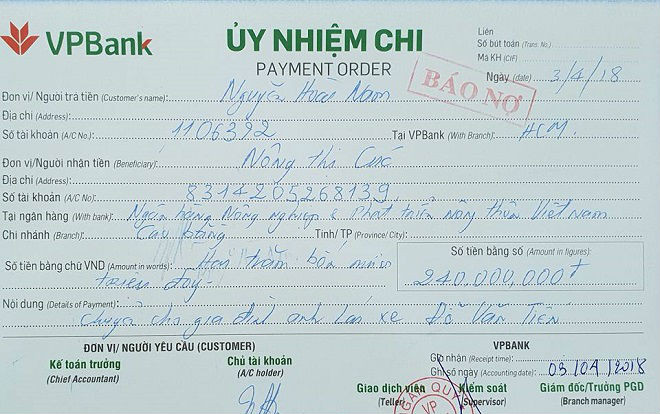 VPBank
ỦY NHIỆM CHI
PAYMENT ORDER
Liên
Số bút toán (Trans. No.)
Mã KH (CIF)
Ngày (date) 3/4/18
BÁO NỢ
Đơn vị/ Người trả tiền (Customer's name): Nguyễn Hoài Nam
Địa chỉ (Address):
Số tài khoản (A/C No.): 1106392 Tại VPBank (With Branch): HCM
Đơn vị/Người nhận tiền (Beneficiary): Nông thị Cúc
Địa chỉ (Address):
Số tài khoản (A/C No): 8314205268139
Tại ngân hàng (With bank): Ngân hàng Nông nghiệp & Phát triển nông thôn Việt Nam
Chi nhánh (Branch): Cao Bằng Tỉnh/ TP (Province/ City):
Số tiền bằng chữ VND (Amount in words): Hai trăm bốn mươi
triệu
Số tiền bằng số (Amount in figures):
240,000,000đ
Nội dung (Details of Payment):
chuyển cho gia đình anh lái xe Đỗ Văn Tiến
ĐƠN VỊ/ NGƯỜI YÊU CẦU (CUSTOMER)
VPBANK
Kế toán trưởng
(Chief Accountant)
Chủ tài khoản
(A/C holder)
Ghi nhận (Receipt time):
Ghi sổ ngày (Accounting date): 03/04/2018
Giao dịch viên
(Teller)
Kiểm soát
(Supervisor)
Giám đốc/Trưởng PGD
(Branch manager)
VP